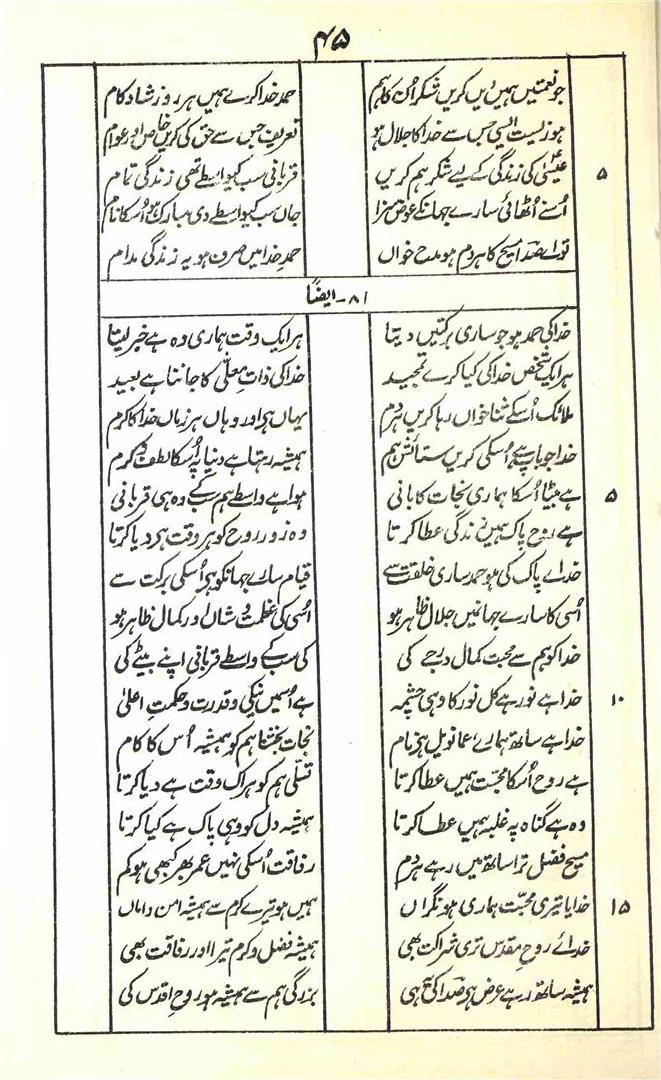 ۴۵
جو نعمتیں ہمیں دیں کریں شکر اُن کا ہم حمدِ خدا کرے ہمیں ہر روز شادکام
ہو زیست ایسی جس سے خدا کا جلال ہو تعریف جس سے حق کی کریں خاص اور عوام
۵ عیسیٰ کی زندگی کے لیے شکر ہم کریں قربانی سب کیواسطے تھی زندگی تمام
اُسنے اُٹھائی سارے جہانکے عوض سزا جاں سب کیواسطے دی مبارک ہو اُسکا نام
تو اے صفدر مسیح کا ہر دم ہو مدح خواں حمدِ خدا میں صرف ہو یہ زندگی مدام
۸۱- ایضاً
خدا کی حمد ہو جو ساری برکتیں دیتا ہر ایک وقت ہماری وہ ہے خبر لیتا
ہر ایک شخص خدا کی کیا کرے تمجید خدا کی ذاتِ معلّٰی کا جاننا ہے بعید
ملائک اُسکے ثنا خواں رہا کریں ہر دم یہاں ہو اور وہاں ہر زباں خدا کا کرم
خدا جو باپ ہے اُسکی کریں ستائش ہم ہمیشہ رہتا ہے دنیا پہ اُسکا لطف و کرم
۵ ہے بیٹا اُسکا ہماری نجات کا بانی ہوا ہے واسطے ہم سب کے وہ ہی قربانی
ہے روحِ پاک ہمیں زندگی عطا کرتا وہ زور روح کو ہر وقت ہے دیا کرتا
خدائے پاک کی ہو حمد ساری خلقت سے قیام سارے جہانکو ہے اُسکی برکت سے
اُسی کا سارے جہانمیں جلال ظاہر ہو اُسی کی عظمت و شان اور کمال ظاہر ہو
خدا کو ہم سے محبت کمال درجے کی کی سب کے واسطے قربانی اپنے بیٹے کی
۱۰ خدا ہے نور ہے کل نور کا وہی چشمہ ہے اُسمیں نیکی و قدرت و حکمتِ اعلیٰ
خدا ہے ساتھ ہمارے عمانوئیل ہے نام نجات بخشنا ہم کو ہمیشہ اُس کا کام
ہے روح اُسکا محبت ہمیں عطا کرتا تسلّی ہم کو ہر اک وقت ہے دیا کرتا
وہ ہے گناہ پہ غلبہ ہمیں عطا کرتا ہمیشہ دل کو وہی پاک ہے کیا کرتا
مسیح فضل ترا ساتھ میں رہے ہر دم رفاقت اُسکی نہیں عمر بھر کبھی ہو کم
۱۵ خدایا تیری محبّت ہماری ہو نگراں ہمیں ہو تیرے کرم سے ہمیشہ امن و اماں
خدائے روحِ مقدس تری شراکت بھی ہمیشہ فضل و کرم تیرا اور رفاقت بھی
ہمیشہ ساتھ رہے عرض ہے صفدر کی یہی بزرگی ہم سے ہمیشہ ہو روحِ اقدس کی